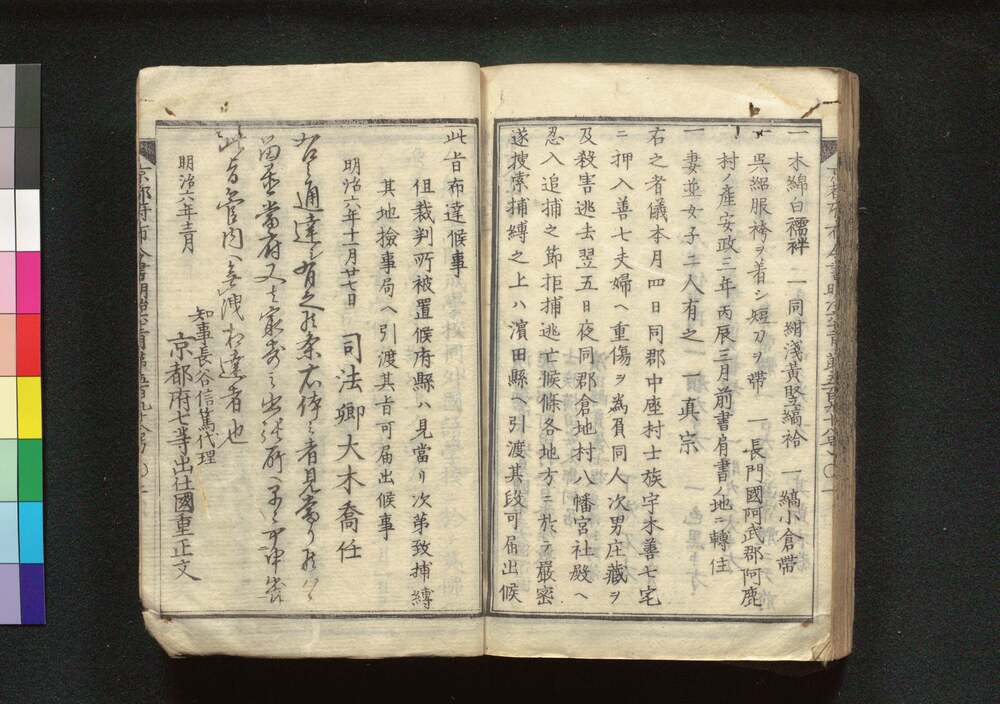 一 木綿白襦袢 一 同紺淺黃竪縞袷 一 縞小倉帶
一 呉絽服袴ヲ着シ短刀ヲ帶 一 長門國阿武郡阿鹿
村ノ産安政三年丙辰三月前書肩書ノ地ニ轉住
一 妻並女子二人有之 一 真宗
右之者儀本月四日同郡中座村士族宇木善七宅
ニ押入善七夫婦ヘ重傷ヲ為負同人次男庄藏ヲ
及殺害逃去翌五日夜同郡倉地村八幡宮社殿ヘ
忍入追捕之節拒捕逃亡候條各地方ニ於テ嚴密
遂搜索捕縛之上ハ濵田縣ヘ引渡其段可届出候
此旨布達候事
但裁判所被置候府縣ハ見當リ次第致捕縛
其地撿事局ヘ引渡其旨可届出候事
明治六年十一月廿七日 司法卿大木喬任
右之通達シ有之候条右体之者見當リ候ハヽ
留置當府又は最寄之出張所ヘ早々可申出
此旨管内ヘ無洩相達者也
明治六年十二月
知事長谷信篤代理
京都府七等出仕國重正文